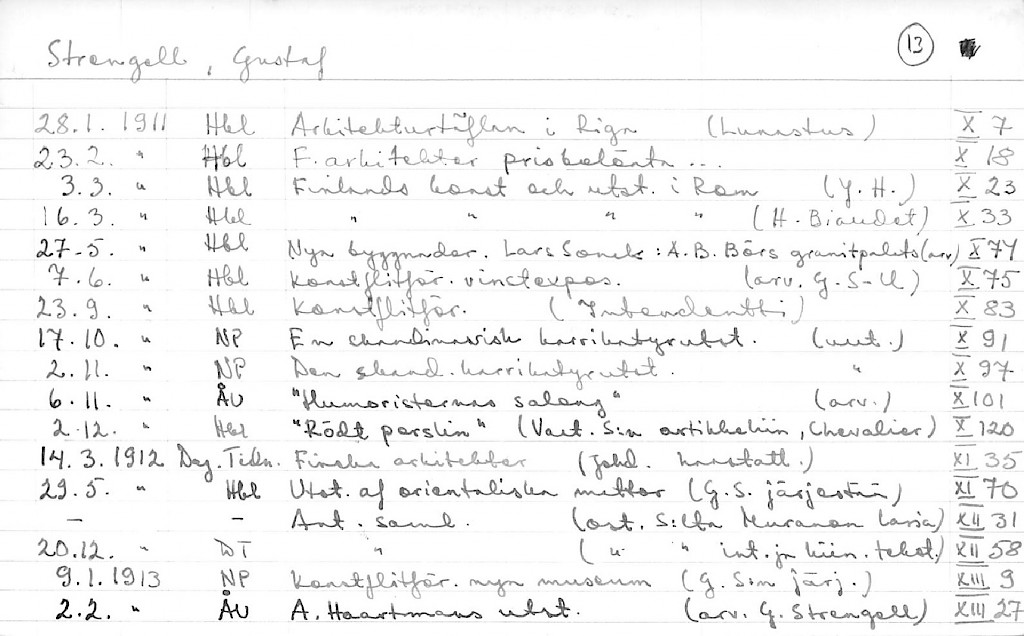 13
Strengell, Gustaf
28.1. 1911 Hbl Arkitekturtäflan i Riga (Lunastus) X 7
23.2. " Hbl F. arkitekter prisbelönta ... X 18
3.3. " Hbl Finlands konst och utst. i Rom (Y.H.) X 23
16.3. " Hbl " " " " (H. Biaudet) X 33
27.5. " Hbl Nya byggnader. Lars Sonck: A.B. Börs granitpalats (arv) X 74
7.6. " Hbl Konstflitför. vinstexpos. (arv. G. S-ll) X 75
23.9. " Hbl Konstflitför. (Intendentti) X 83
17.10. " NP En skandinavisk karrikatyrutst. (uut.) X 91
2.11. " NP Den skand. karrikatyrutst. " X 97
6.11. " ÅU "Humoristernas salong" (arv.) X 101
2.12. " Hbl "Rödt porslin" (Vast. S:n artikkeliin, Chevalier) X 120
14.3. 1912 Dag. Tidn. Finska arkitekter (Johd. kunstatt.) XI 35
29.5. " Hbl Utst. af orientaliska mattor (G.S. järjestää) XI 70
– – Ant. saml. (ost. S:lta Muranon lasia) XII 31
20.12. " DT " (" " int. ja kiin. tekst.) XII 58
9.1. 1913 NP Konstflitför. nya museum (G. S:n järj.) XIII 9
2.2. " ÅU A. Haartmans utst. (arv. G. Strengell) XIII 27